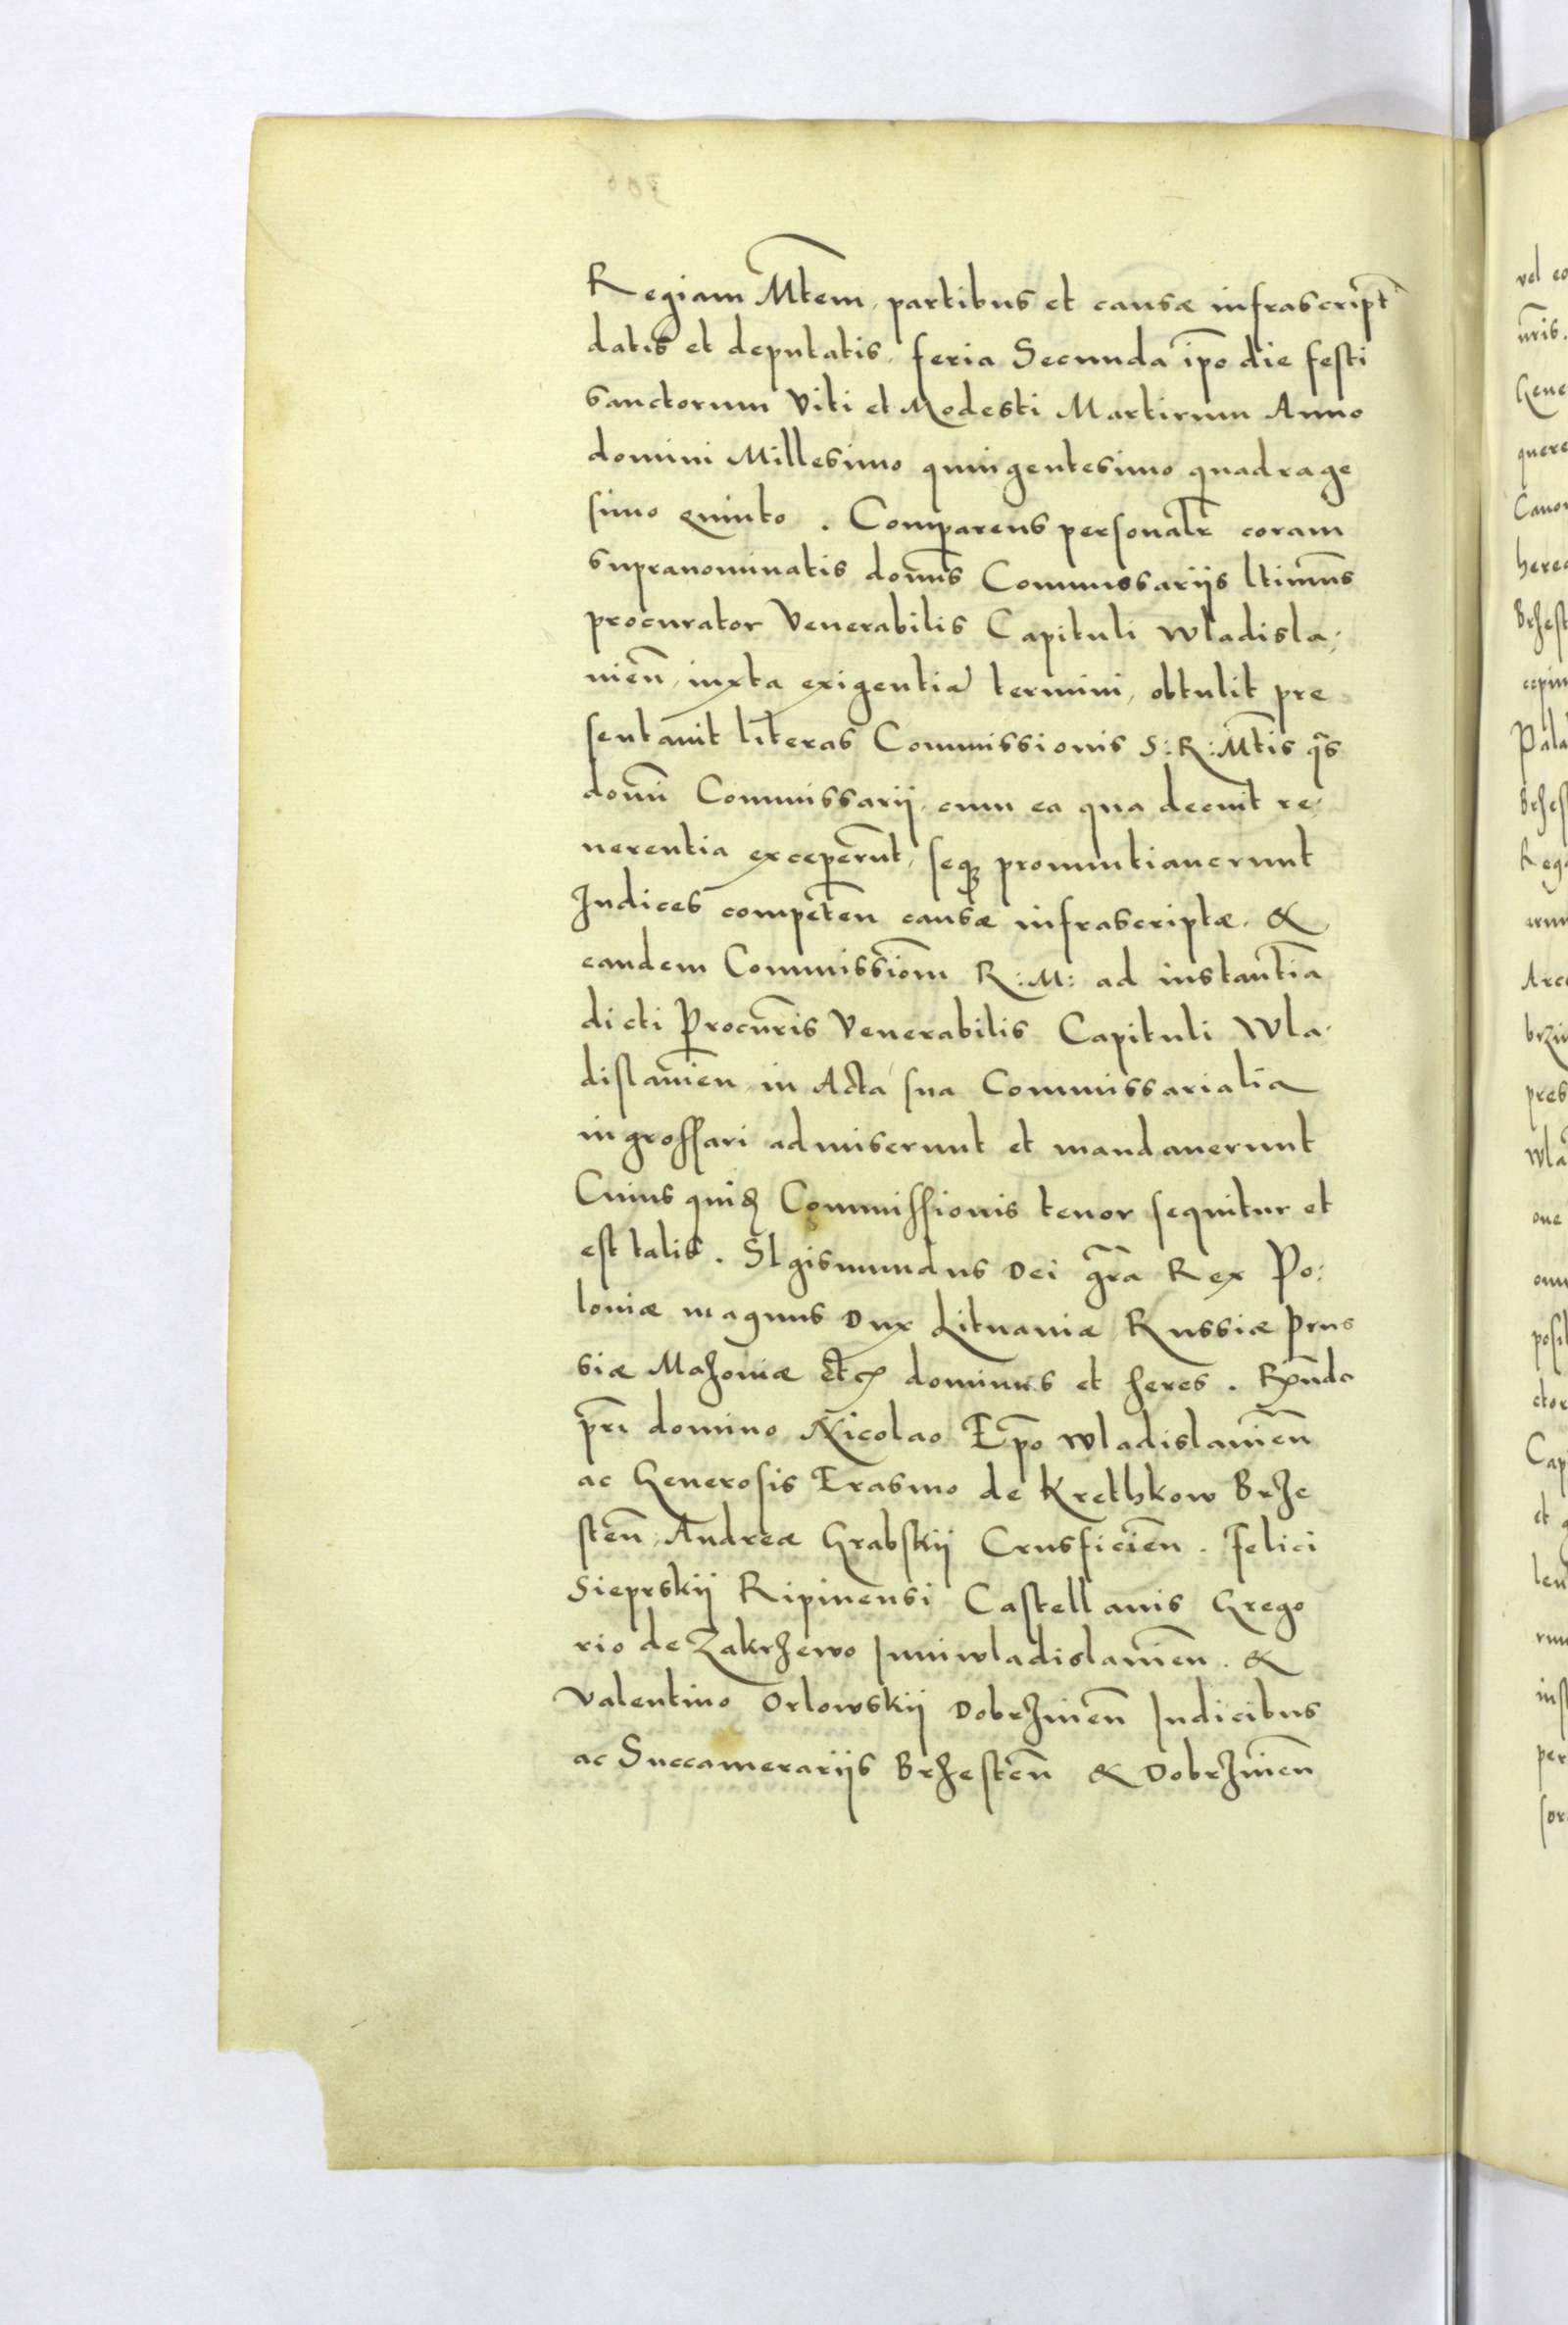 Regiam Mtem, partibus et causæ infrascript
datis et deputatis, feria Secunda ip̄o die festi
sanctorum Viti et Modesti Martirum Anno
domini Millesimo quingentesimo quadrage
simo quinto. Comparens personalr̄ coram
supranominatis domīs Commissariis ltimūs
procurator Venerabilis Capituli Wladisla:
uien̄, iuxta exigentiā termini, obtulit pre
sentauit literas Commissionis S: R: Mtis q̄s
domī Commissarij, cum ea qua decuit re:
uerentia exceperūt, seq; pronuntiauerunt
Iudices compēten causæ infrascriptæ. &
eandem Commissiōm R: M: ad instantiā
dicti Procurīs Venerabilis Capituli Wla:
dislauien̄ in Acta sua Commissarialia
ingrossari admiserunt et mandauerunt
Cuius quidē Commissionis tenor sequitur et
est talis. SIgismundus Dei gr̄a Rex Po:
loniæ magnus Dux Lituaniæ Russiæ Prus
siæ Mazoniæ Etc dominus et heres. Rn̄do
pr̄i domino Nicolao Ep̄o Wladislauien̄
ac Generosis Erasmo de Krethkow Brze
sten̄, Andreæ Grabskij Crusficien̄. Felici
Sieprskij Ripinensi Castellanis Grego
rio de Zakrzewo Iuniwladislauien̄. &
Valentino Orlowskij Dobrzinen̄ Iudicibus
ac Succamerariis Brzesten̄ & Dobrzinen̄